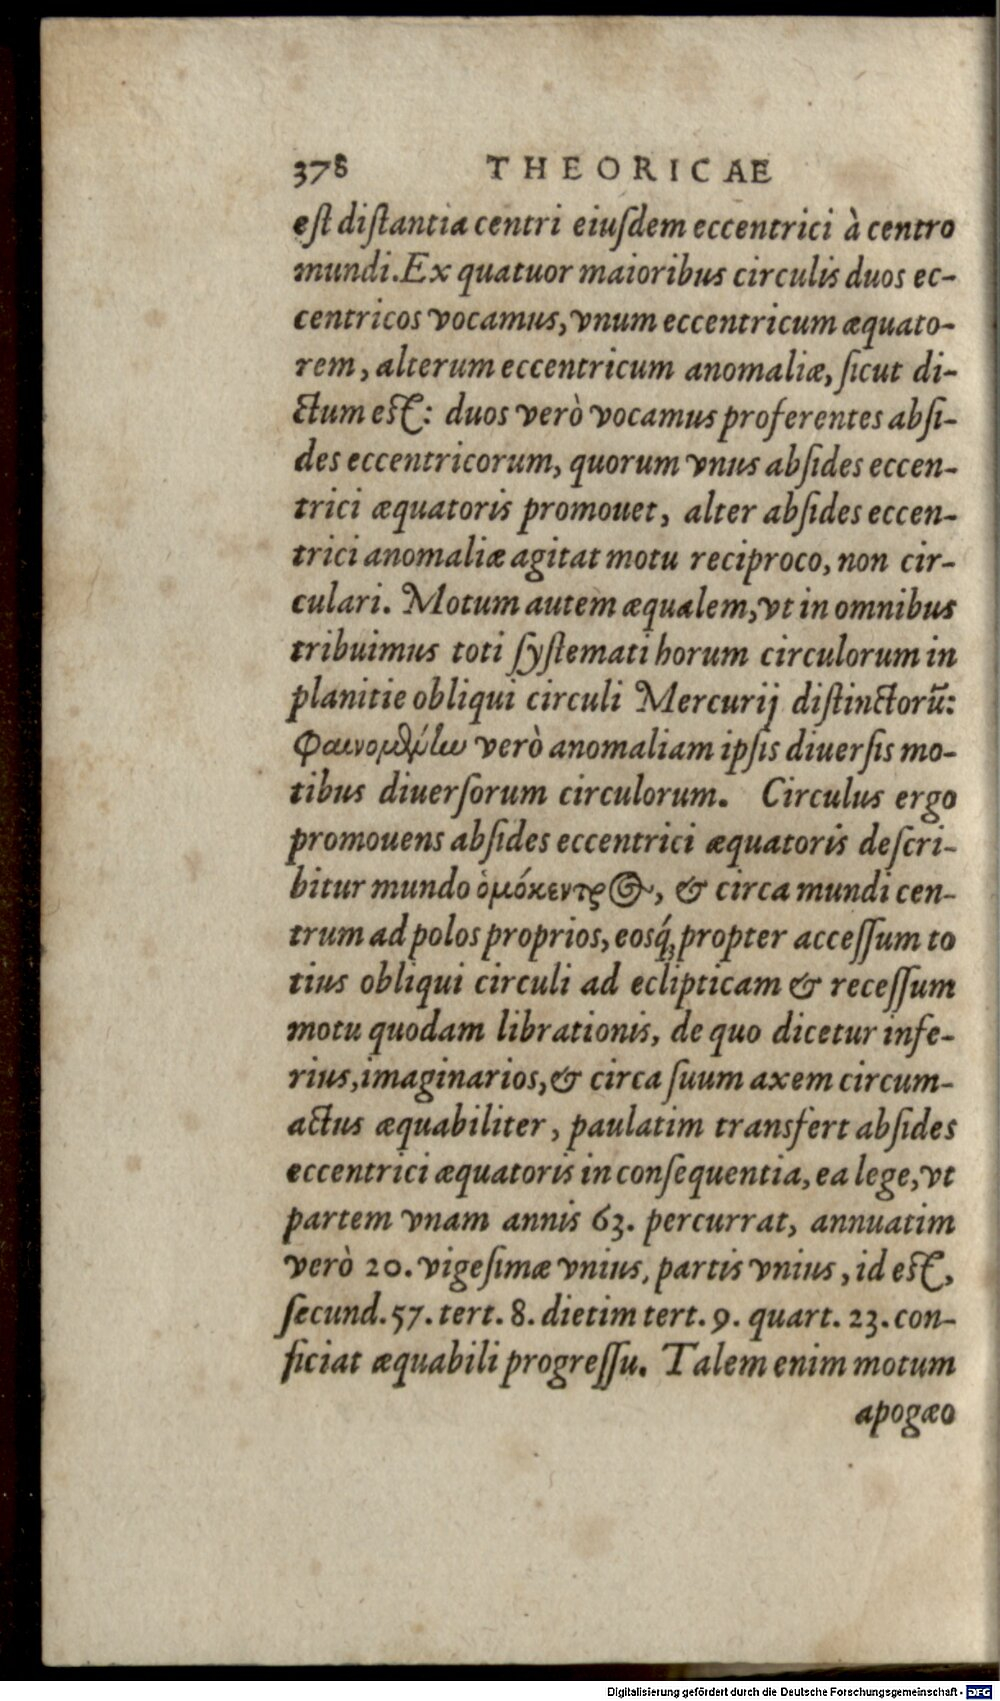 378 THEORICAE
eſt diſtantia centri eiuſdem eccentrici à centro
mundi. Ex quatuor maioribus circulis duos ec-
centricos vocamus, vnum eccentricum æquato-
rem, alterum eccentricum anomaliæ, ſicut di-
ctum eſt: duos verò vocamus proferentes abſi-
des eccentricorum, quorum vnus abſides eccen-
trici æquatoris promouet, alter abſides eccen-
trici anomaliæ agitat motu reciproco, non cir-
culari. Motum autem æqualem, vt in omnibus
tribuimus toti ſyſtemati horum circulorum in
planitie obliqui circuli Mercurij diſtinctorū:
Φαινομένην verò anomaliam ipſis diuerſis mo-
tibus diuerſorum circulorum. Circulus ergo
promouens abſides eccentrici æquatoris deſcri-
bitur mundo ὁμόκεντρος, & circa mundi cen-
trum ad polos proprios, eosq́; propter acceſſum to
tius obliqui circuli ad eclipticam & receſſum
motu quodam librationis, de quo dicetur infe-
rius, imaginarios, & circa ſuum axem circum-
actus æquabiliter, paulatim transfert abſides
eccentrici æquatoris in conſequentia, ea lege, vt
partem vnam annis 63. percurrat, annuatim
verò 20. vigeſimæ vnius, partis vnius, id eſt,
ſecund. 57. tert. 8. dietim tert. 9. quart. 23. con-
ficiat æquabili progreſſu. Talem enim motum
apogæo
Digitalisierung gefördert durch die Deutsche Forschungsgemeinschaft - DFG